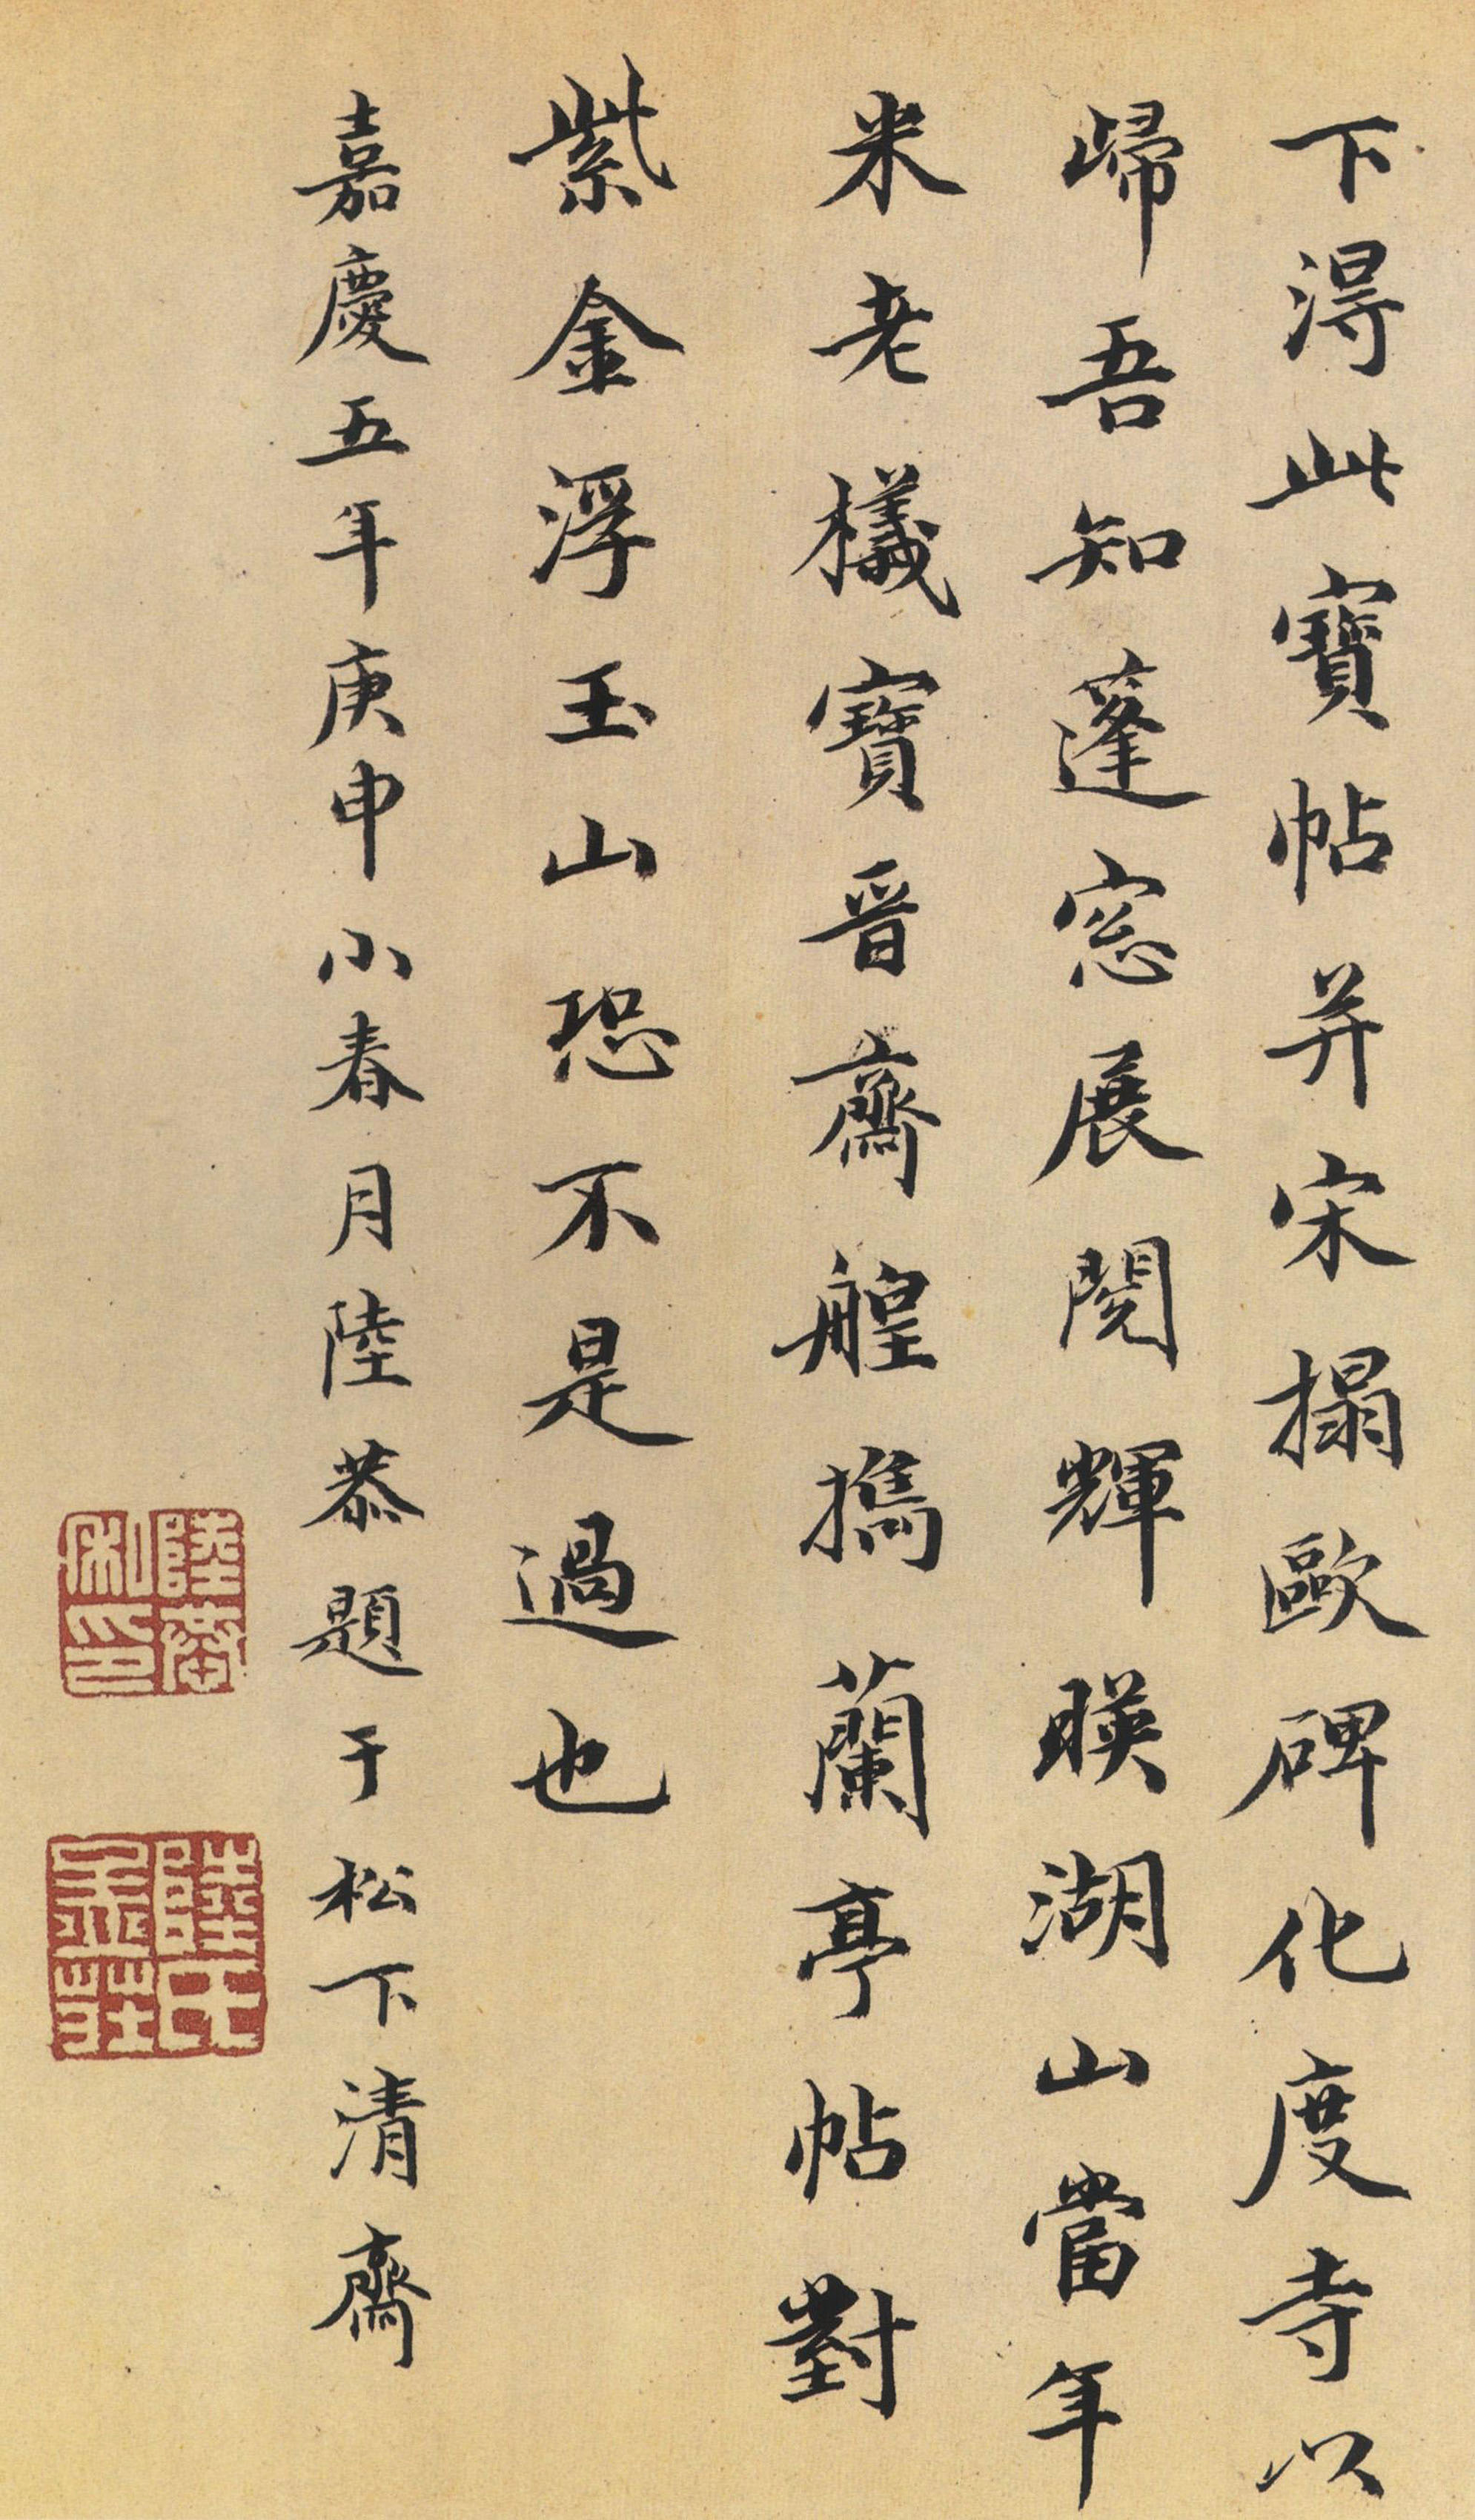 下得此寶帖并宋搨歐碑化度寺以
歸吾知蓬窓展閱輝暎湖山當年
米老檥寶晉齋艎攜蘭亭帖對
紫金浮玉山恐不是過也
嘉慶五年庚申小春月陸恭題于松下清齋
陸恭私印
陸氏